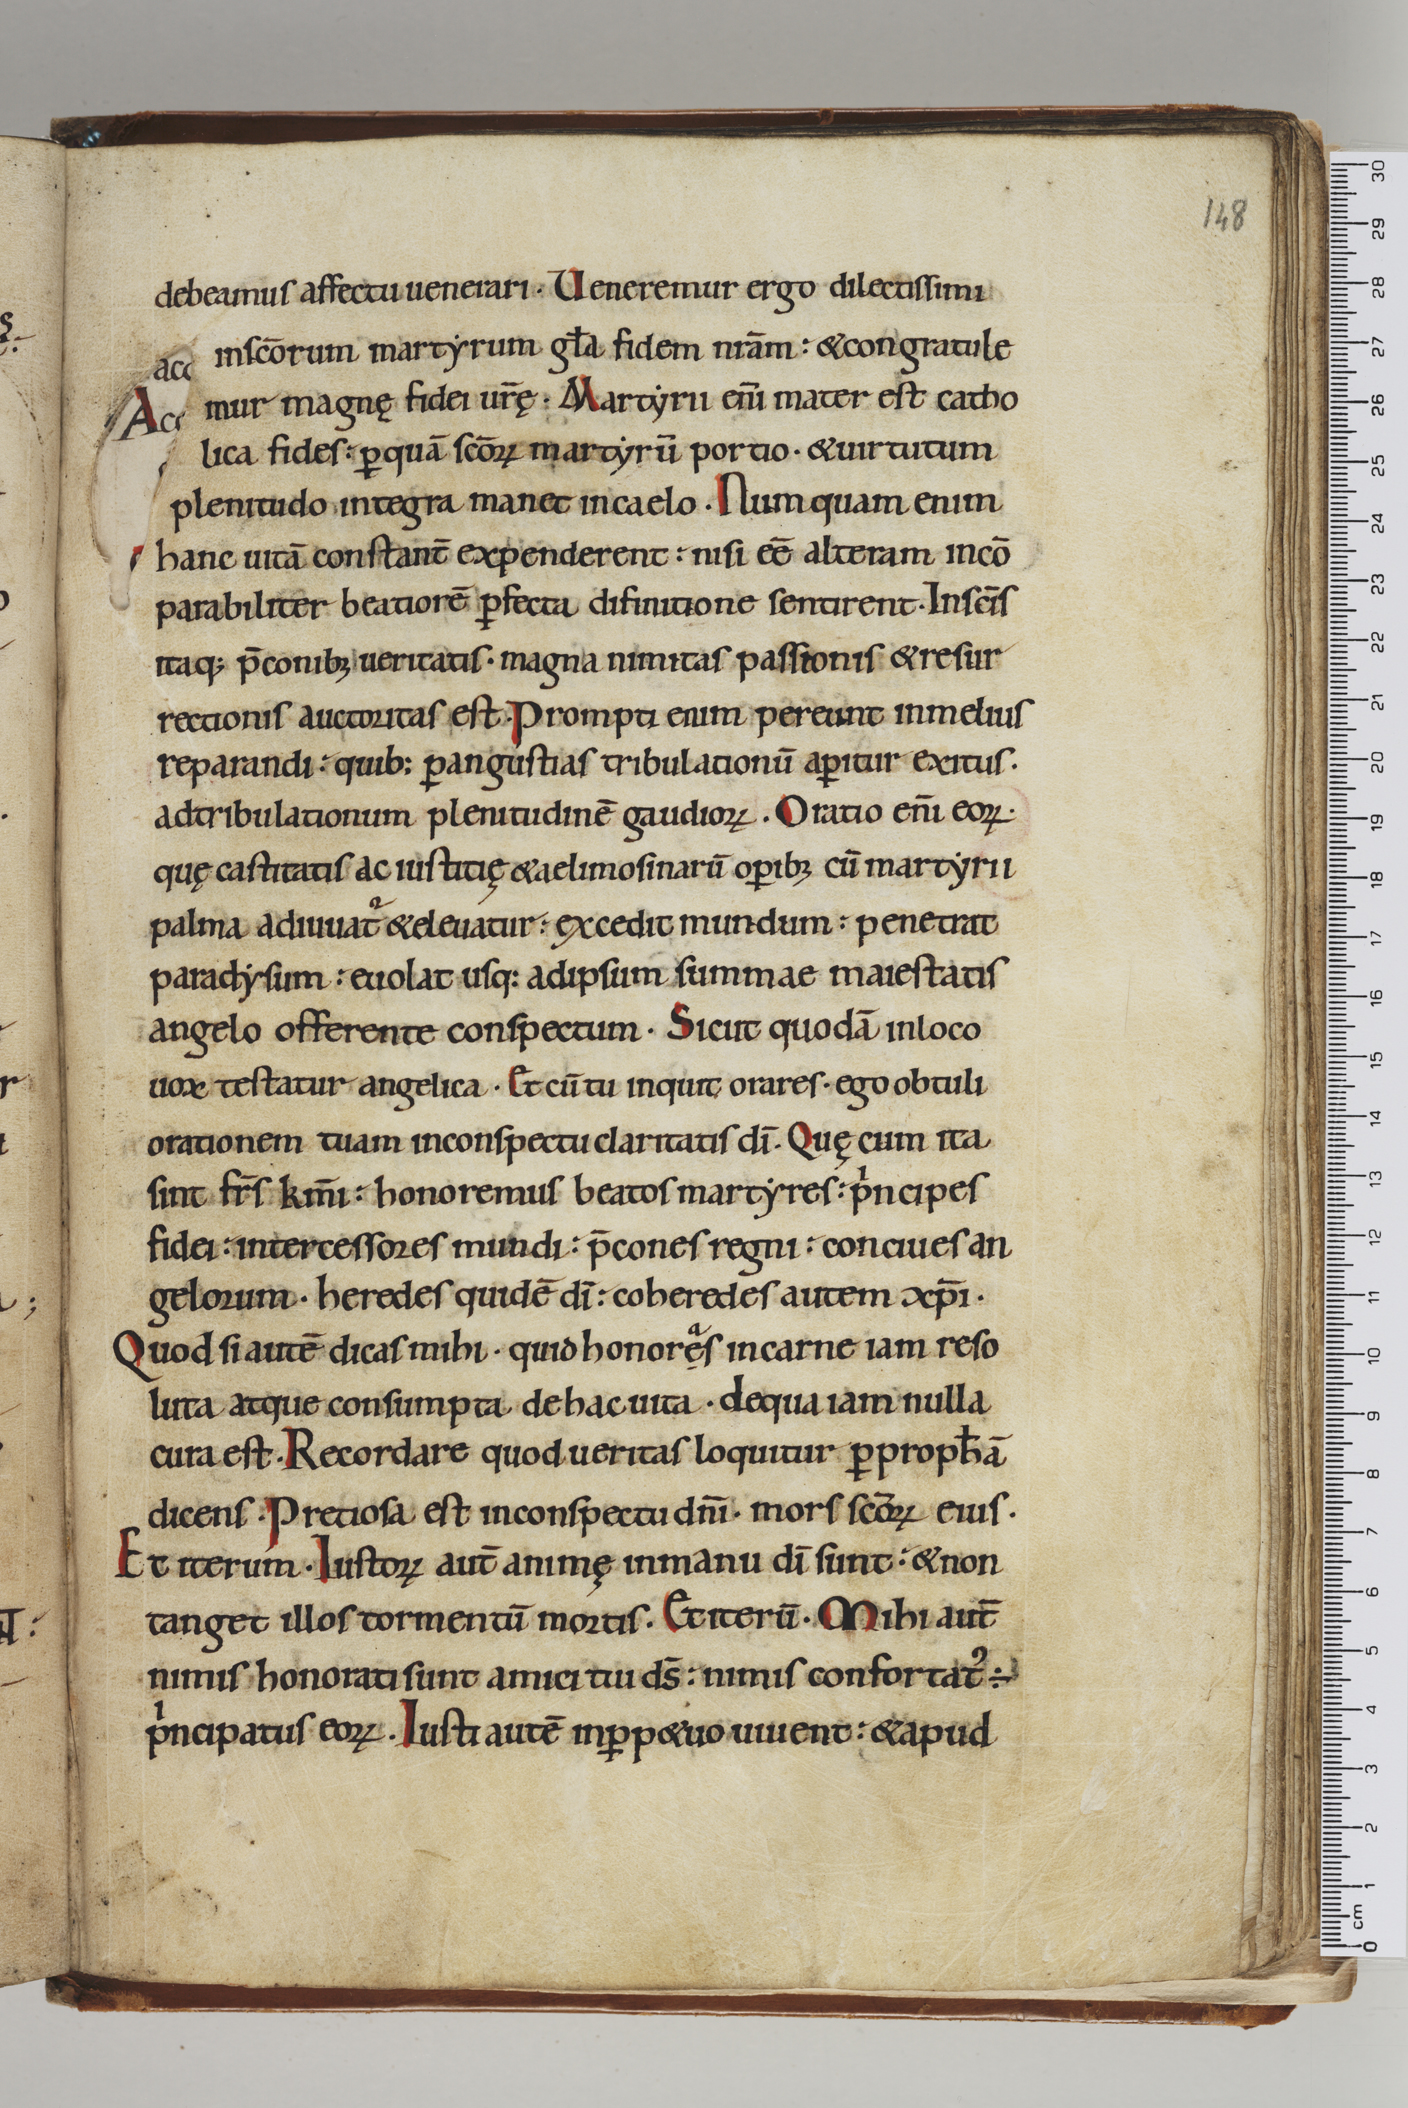 148
debeamus affectu uenerari · Ueneremur ergo dilectissimi
insc̄orum martẏrum gƚa fidem nr̄am : & congratule
mur magnę fidei ur̄ę · Martẏrii eni̅ mater est catho
lica fides : ꝑ quā sc̄oꝝ martẏrū portio · & uirtutum
plenitudo integra manet in caelo . Num quam enim
hanc uitā constant̄ expenderent : nisi eē alteram incō
parabiliter beatiorē ꝑfecta difinitione sentirent · In sc̄is
itaq; p̄conibꝫ ueritatis · magna nimitas passionis & resur
rectionis auctoritas est . Prompti enim pereunt in melius
reparandi : quib; ꝑ angustias tribulationū aꝑitur exitus .
ad tribulationum plenitudinē gaudioꝝ . Oratio en̄i eoꝝ ·
quę castitatis ac iustitię & aelimosinarū oꝑibꝫ cū martẏrii
palma adiuuat̄ᵃ & eleuatur : excedit mundum : penetrat
paradẏsum : euolat usq; ad ipsum summae maiestatis
angelo offerente conspectum · Sicut quodā in loco
uox testatur angelica · Et cū tu inquit orares · ego obtuli
orationem tuam in conspectu claritatis dī . Quę cum ita
sint fr̄s km̄i : honoremus beatos martẏres : pͥncipes
fidei : intercessores mundi : p̄cones regni : conciues an
gelorum · heredes quidē dī : coheredes autem xp̄i .
Quod si autē dicas mihi · quid honorẹᵃs in carne iam reso
luta atque consumpta de hac uita · de qua iam nulla
cura est . Recordare quod ueritas loquitur ꝑ prophā
dicens . Pretiosa est in conspectu dn̄i · mors sc̄oꝝ eius .
Et iterum . Iustoꝝ aut̄ animę in manu dī sunt : & non
tanget illos tormentū mortis . Et iterū · Mihi aut̄
nimis honorati sunt amici tui ds̄ : nimis confortat᷒ ÷
pͥncipatus eoꝝ . Iusti autē in ꝑp&uo uiuent : & apud